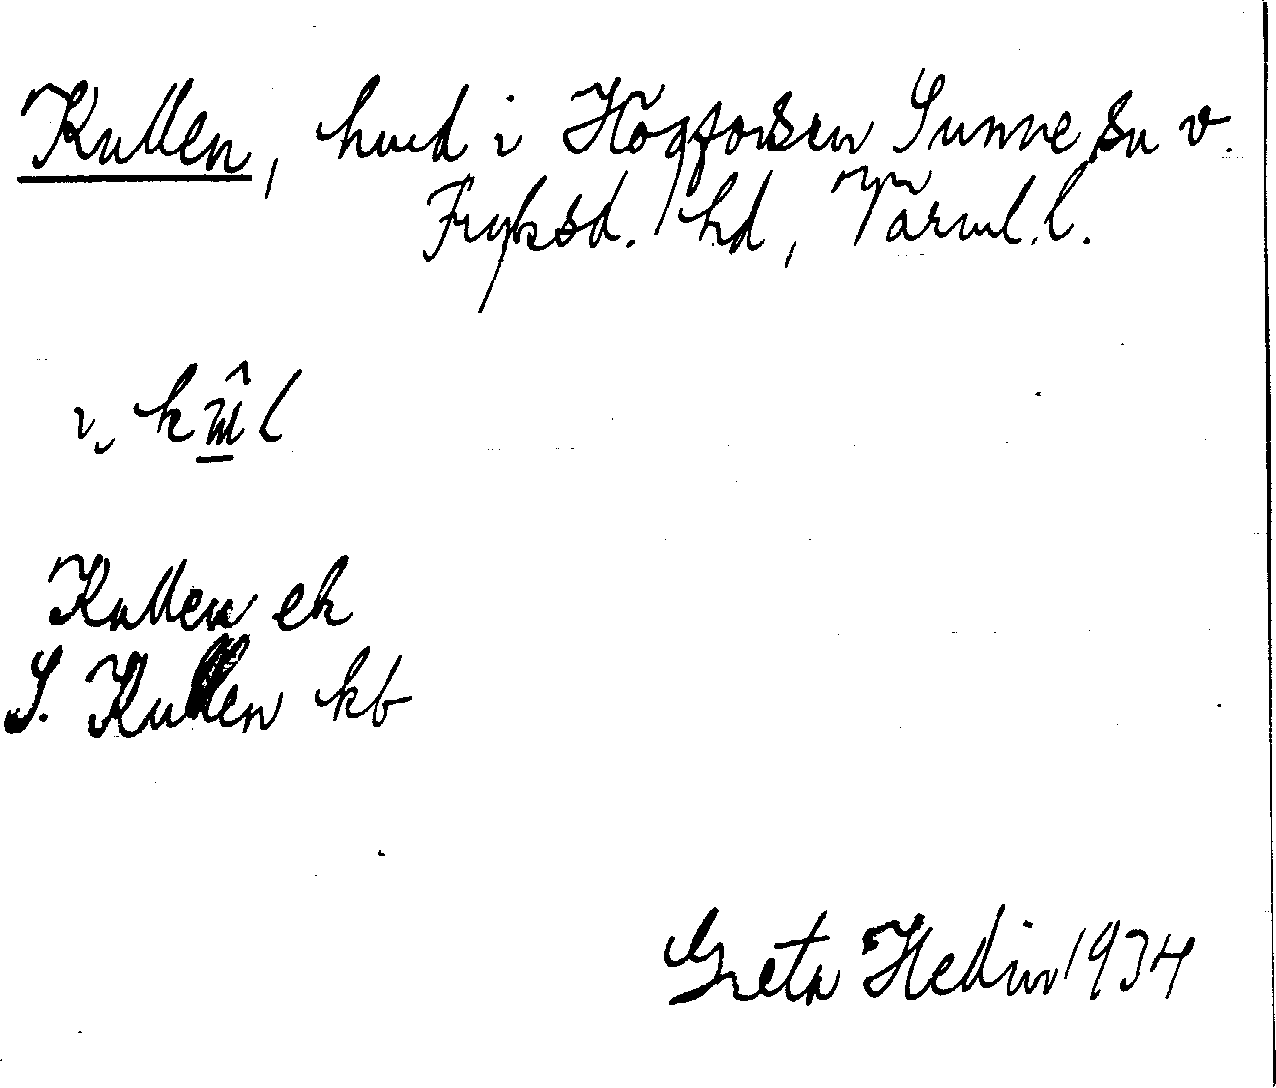 Kullen, hmd i Högforsen Sunne sn v.
Fryksd. hd, Värml. l.
Kullen ek
S. Kullen kb
Greta Hedin 1934